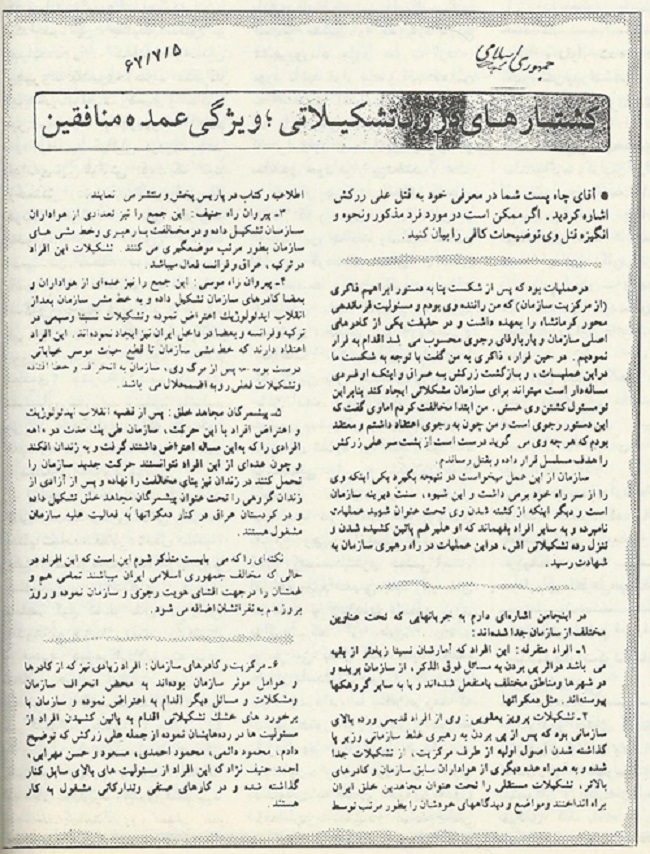 جمهوری اسلامی
۶۷/۷/۵
کشتارهای درون تشکیلاتی؛ ویژگی عمده منافقین
● آقای چاه پست شما در معرفی خود به قتل علی زرکش
اشاره کردید. اگر ممکن است در مورد فرد مذکور و نحوه و
انگیزه قتل وی توضیحات کافی را بیان کنید.
در عملیات بود که پس از شکست بنا به دستور ابراهیم ذاکری
(از مرکزیت سازمان) که من راننده وی بودم و مسئولیت فرماندهی
محور کرمانشاه را بعهده داشت و در حقیقت یکی از کادرهای
اصلی سازمان و یار وفادار رجوی محسوب می شد اقدام به فرار
نمودیم. در حین فرار، ذاکری به من گفت با توجه به شکست ما
در این عملیات، و بازگشت زرکش به عراق و اینکه او فردی
مسأله‌دار است میتواند برای سازمان مشکلاتی ایجاد کند بنابراین
تو مسئول کشتن وی هستی. من ابتدا مخالفت کردم اما وی گفت که
این دستور رجوی است و من چون به رجوی اعتقاد داشتم و معتقد
بودم که هر چه وی می گوید درست است از پشت سر علی زرکش
را هدف مسلسل قرار داده و بقتل رساندم.
سازمان از این عمل میخواست دو نتیجه بگیرد یکی اینکه وی
را از سر راه خود برمی داشت و این شیوه، سنت دیرینه سازمان
است و دیگر اینکه از کشته شدن وی تحت عنوان شهید عملیات
نامبرده و به سایر افراد بفهماند که او علیرغم پائین کشیده شدن و
تنزل رده تشکیلاتی اش، در این عملیات در راه رهبری سازمان به
شهادت رسید.
در اینجا من اشاره‌ای دارم به جریانهایی که تحت عناوین
مختلف از سازمان جدا شده‌اند:
۱ـ افراد متفرقه: این افراد که آمارشان نسبتا زیادتر از بقیه
می باشد در اثر پی بردن به مسائل فوق الذکر، از سازمان بریده و
در شهرها و مناطق مختلف یا منفعل شده‌اند و یا به سایر گروهکها
پیوسته‌اند. مثل دمکراتها
۲ـ تشکیلات پرویز یعقوبی: وی از افراد قدیمی و رده بالای
سازمانی بود که پس از پی بردن به رهبری غلط سازمانی و زیر پا
گذاشته شدن اصول اولیه از طرف مرکزیت، از تشکیلات جدا
شده و به همراه عده دیگری از هواداران سابق سازمان و کادرهای
بالاتر، تشکیلات مستقلی را تحت عنوان مجاهدین خلق ایران
براه انداختند و مواضع و دیدگاههای خودشان را بطور مرتب توسط
اطلاعیه و کتاب در پاریس پخش و منتشر می نمایند.
۳ـ پیروان راه حنیف: این جمع را نیز تعدادی از هواداران
سازمان تشکیل داده و در مخالفت با رهبری و خط مشی های
سازمان بطور مرتب موضعگیری می کنند. تشکیلات این افراد
در ترکیه، عراق و فرانسه فعال میباشد.
۴ـ پیروان راه موسی: این جمع را نیز عده‌ای از هواداران و
بعضا کادرهای سازمان تشکیل داده و به خط مشی سازمان بعد از
انقلاب ایدئولوژیک اعتراض نموده و تشکیلات نسبتا رسمی در
ترکیه و فرانسه و بعضا در داخل ایران نیز ایجاد نموده‌اند. این افراد
اعتقاد دارند که خط مشی سازمان تا قطع حیات موسی خیابانی
درست بوده پس از مرگ وی، سازمان به انحراف و خطا افتاده
و تشکیلات فعلی رو به اضمحلال می باشد.
۵ـ پیشمرگان مجاهد خلق: پس از قضیه انقلاب ایدئولوژیک
و اعتراض افراد با این حرکت، سازمان طی یک مدت ده ماهه
افرادی را که به این مساله اعتراض داشتند گرفت و به زندان افکند
و چون عده‌ای از این افراد نتوانستند حرکت جدید سازمان را
تحمل کنند در زندان نیز بنای مخالفت را نهاده و پس از آزادی از
زندان گروهی را تحت عنوان پیشمرگان مجاهد خلق تشکیل داده
و در کردستان عراق در کنار دمکراتها به فعالیت علیه سازمان
مشغول هستند.
نکته‌ای را که می بایست متذکر شوم این است که این افراد در
حالی که مخالف جمهوری اسلامی ایران میباشند تمامی هم و
غمشان را در جهت افشای هویت رجوی و سازمان نموده و روز
بروز هم به نفراتشان اضافه می شود.
۶ـ مرکزیت و کادرهای سازمان: افراد زیادی نیز که از کادرها
و عوامل موثر سازمان بوده‌اند به محض انحراف سازمان
ومشکلات و مسائل دیگر اقدام به اعتراض نموده و سازمان با
برخورد های خشک تشکیلاتی اقدام به پائین کشیدن افراد از
مسئولیت ها در رده‌هایشان نموده از جمله علی زرکش که توضیح
دادم، محمود دائمی، محمود احمدی، مسعود و حسن مهرابی،
احمد حنیف نژاد که این افراد از مسئولیت های بالای سابق کنار
گذاشته شده و در کارهای صنفی و تدارکاتی مشغول به کار
هستند.